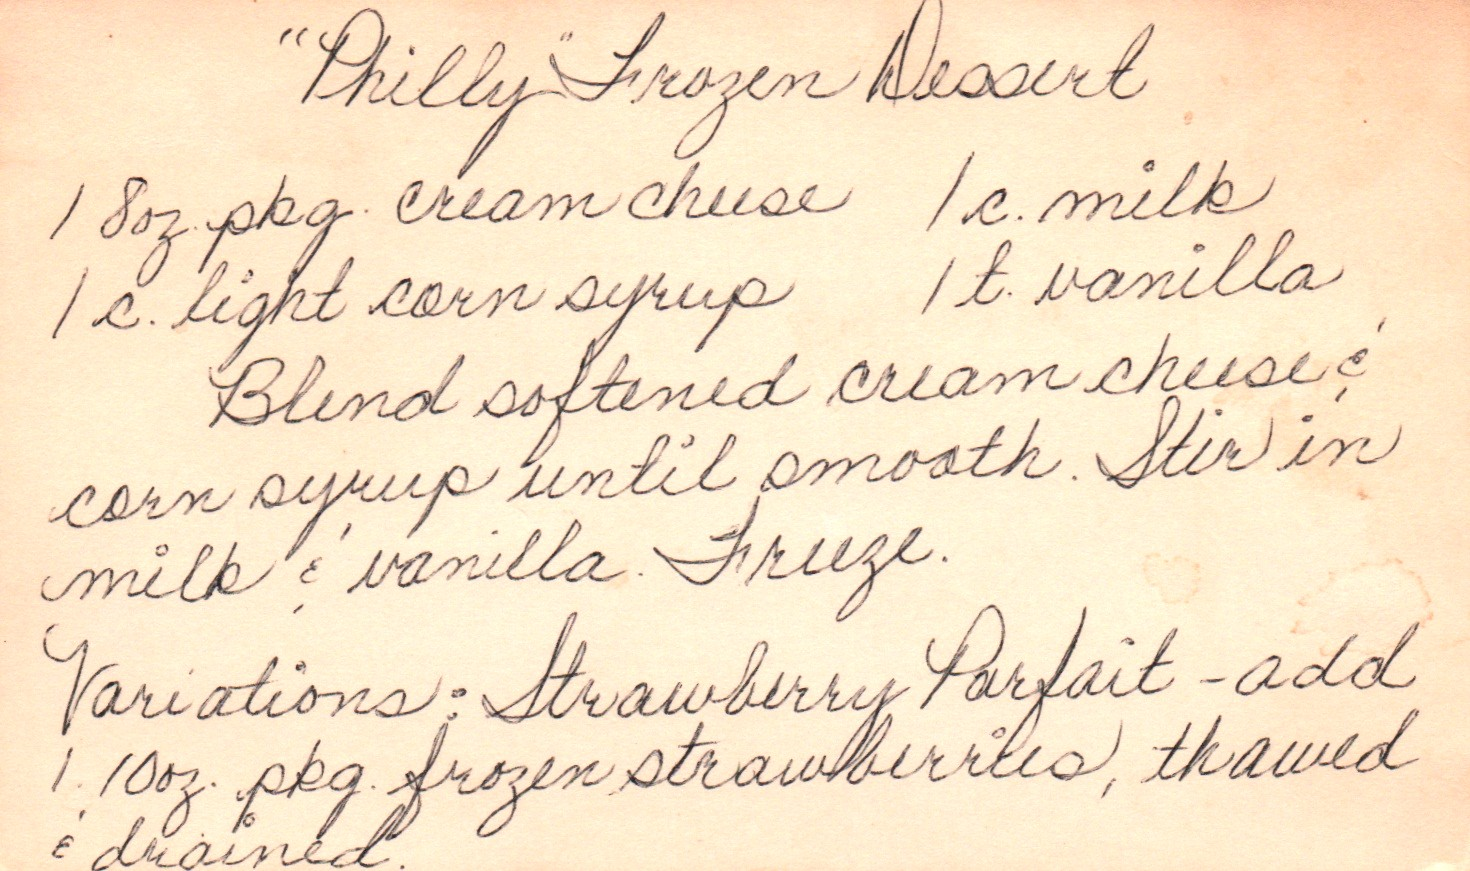 "Philly" Frozen Dessert
1 8oz. pkg. cream cheese 1 c. milk
1 c. light corn syrup 1 t. vanilla
Blend softened cream cheese &
corn syrup until smooth. Stir in
milk & vanilla. Freeze.
Variations: Strawberry Parfait - add
1. 10oz. pkg. frozen strawberries, thawed
& drained.